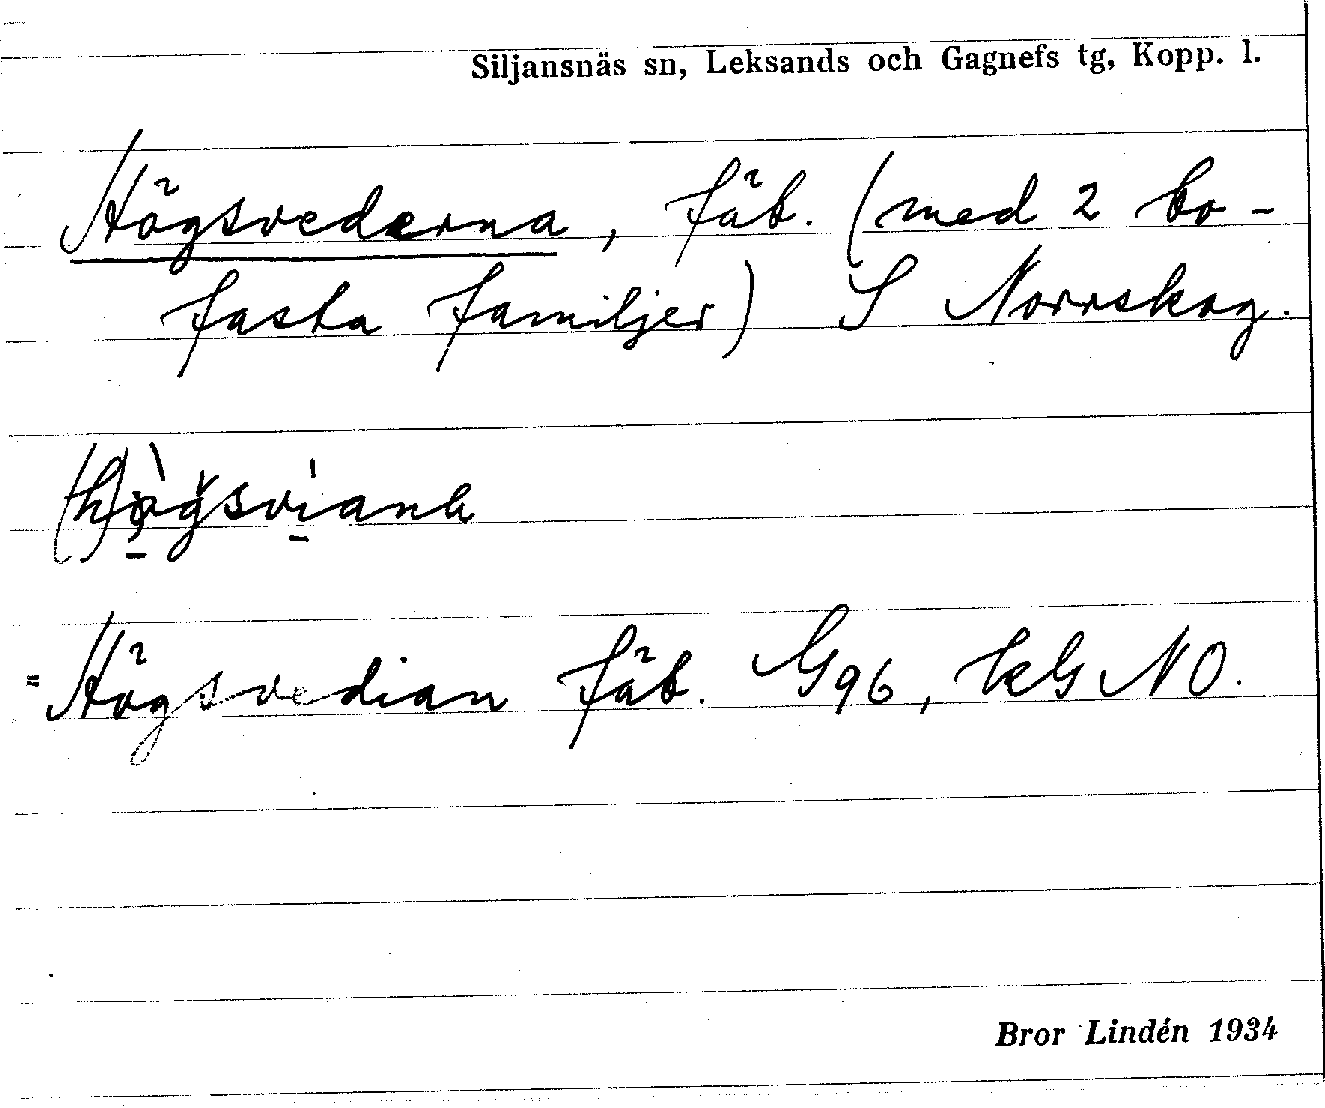 Siljansnäs sn, Leksands och Gagnefs tg, Kopp. l.
Högsvederna, fäb. (med 2 bo-
fasta familjer) S Norrskog.
= Högsvedian fäb. G96, kG NO.
Bror Lindén 1934